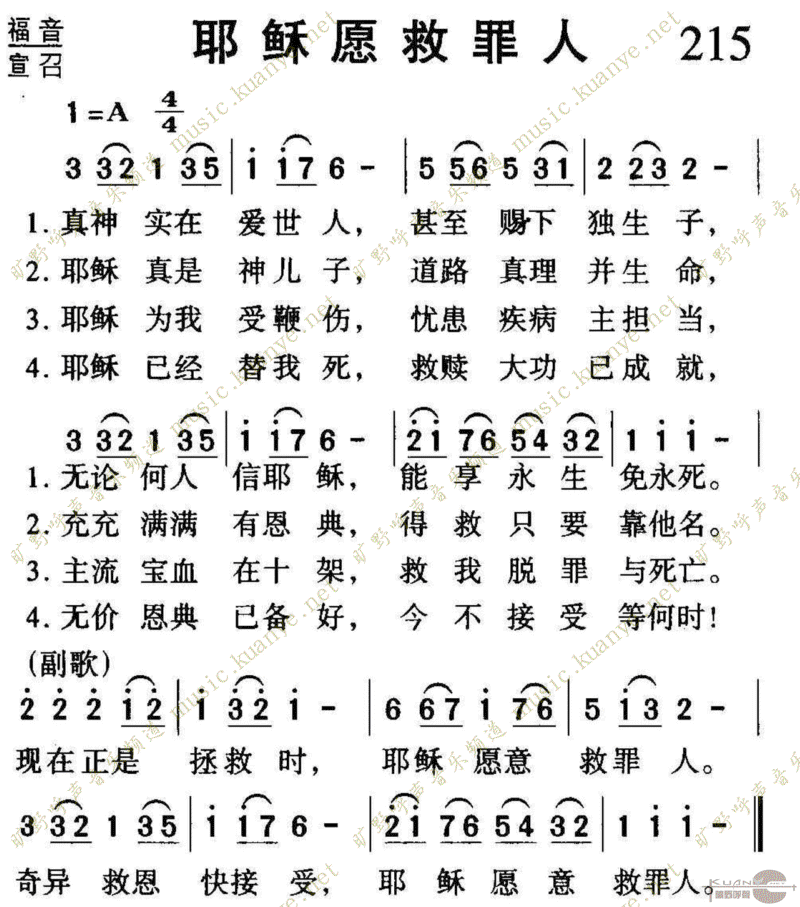 福音
宣召
耶稣愿救罪人 215
1=A 4/4
3 32 1 35 | i i7 6 - | 5 56 5 31 | 2 23 2 - |
1. 真神 实在 爱世 人， 甚至 赐下 独生 子，
2. 耶稣 真是 神儿 子， 道路 真理 并生 命，
3. 耶稣 为我 受鞭 伤， 忧患 疾病 主担 当，
4. 耶稣 已经 替我 死， 救赎 大功 已成 就，
3 32 1 35 | i i7 6 - | 2̇i 76 54 32 | 1 i i - |
1. 无论 何人 信耶 稣， 能 享 永 生 免永死。
2. 充充 满满 有恩 典， 得 救 只 要 靠他名。
3. 主流 宝血 在十 架， 救 我 脱 罪 与死亡。
4. 无价 恩典 已备 好， 今 不 接 受 等何时！
(副歌)
2̇ 2̇ 2̇ i2̇ | i 3̇2̇ i - | 6 67 i 76 | 5 i3 2 - |
现在正是 拯救 时， 耶稣 愿意 救罪 人。
3 32 1 35 | i i7 6 - | 2̇i 76 54 32 | 1 i i - ‖
奇异 救恩 快接 受， 耶 稣 愿 意 救罪人。
旷野呼声音乐频道 music.kuanye.net